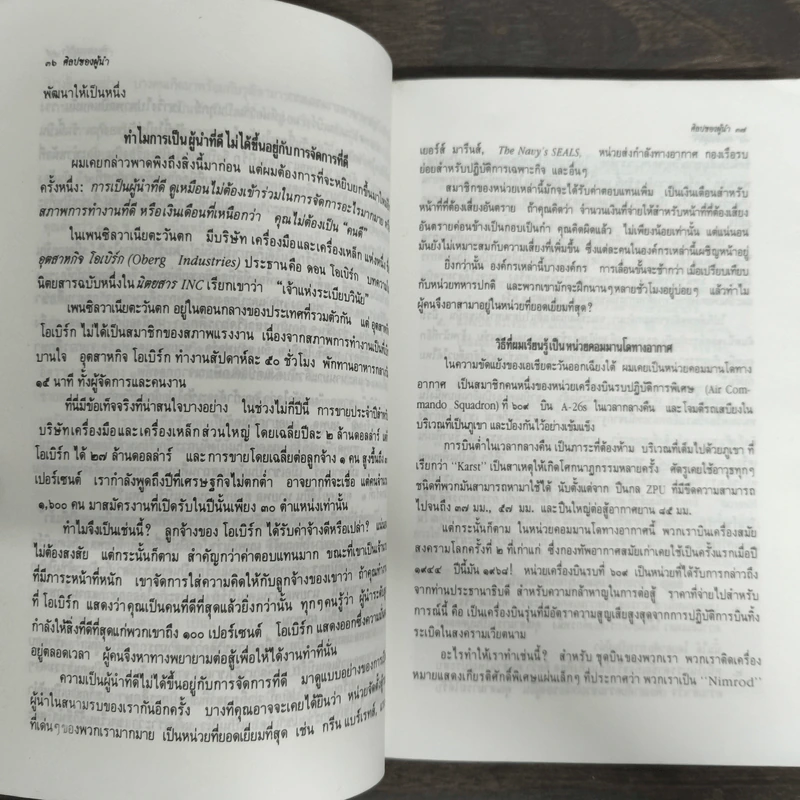 ๓๖ ศิลปของผู้นำ
พัฒนาให้เป็นหนึ่ง
ทำไมการเป็นผู้นำที่ดี ไม่ได้ขึ้นอยู่กับการจัดการที่ดี
ผมเคยกล่าวพาดพิงถึงสิ่งนี้มาก่อน แต่ผมต้องการที่จะหยิบยกขึ้นมาใหม่อีก
ครั้งหนึ่ง: การเป็นผู้นำที่ดี ดูเหมือนไม่ต้องเข้าร่วมในการจัดการอะไรมากมาย
สภาพการทำงานที่ดี หรือเงินเดือนที่เหนือกว่า คุณไม่ต้องเป็น "คนดี"
ในเพนซิลวาเนียตะวันตก มีบริษัท เครื่องมือและเครื่องเหล็ก แห่งหนึ่ง ชื่อ
อุตสาหกิจ โอเบิร์ก (Oberg Industries) ประธานคือ ดอน โอเบิร์ก บทความ
นิตยสารฉบับหนึ่งใน นิตยสาร INC เรียกเขาว่า "เจ้าแห่งระเบียบวินัย"
เพนซิลวาเนียตะวันตก อยู่ในตอนกลางของประเทศที่รวมตัวกัน แต่ อุตสาหกิจ
โอเบิร์ก ไม่ได้เป็นสมาชิกของสหภาพแรงงาน เนื่องจากสภาพการทำงานเป็นที่
บานใจ อุตสาหกิจ โอเบิร์ก ทำงานสัปดาห์ละ ๕๐ ชั่วโมง พักทานอาหารกลางวัน
๑๕ นาที ทั้งผู้จัดการและคนงาน
ที่นี่มีข้อเท็จจริงที่น่าสนใจบางอย่าง ในช่วงไม่กี่ปีนี้ การขายประจำปีสำหรับ
บริษัทเครื่องมือและเครื่องเหล็กส่วนใหญ่ โดยเฉลี่ยปีละ ๒ ล้านดอลล่าร์ แต่
โอเบิร์ก ได้ ๒๗ ล้านดอลล่าร์ และการขายโดยเฉลี่ยต่อลูกจ้าง ๑ คน สูงขึ้นถึง
เปอร์เซนต์ เรากำลังพูดถึงปีที่เศรษฐกิจไม่ตกต่ำ อาจยากที่จะเชื่อ แต่คนจำนวน
๑,๖๐๐ คน มาสมัครงานที่เปิดรับในปีนั้นเพียง ๓๐ ตำแหน่งเท่านั้น
ทำไมจึงเป็นเช่นนี้? ลูกจ้างของ โอเบิร์ก ได้รับค่าจ้างดีหรือเปล่า? แน่นอน
ไม่ต้องสงสัย แต่กระนั้นก็ตาม สำคัญกว่าค่าตอบแทนมาก ขณะที่เขาเป็น
ที่มีภาระหน้าที่หนัก เขาจัดการใส่ความคิดให้กับลูกจ้างของเขาว่า ถ้าคุณทำงาน
ที่ โอเบิร์ก แสดงว่าคุณเป็นคนที่ดีที่สุดแล้วยิ่งกว่านั้น ทุกๆคนรู้ว่า ผู้นำระดับสูง
กำลังให้สิ่งที่ดีที่สุดแก่พวกเขาถึง ๑๐๐ เปอร์เซนต์ โอเบิร์ก แสดงออกซึ่งความ
อยู่ตลอดเวลา ผู้คนจึงหาทางพยายามต่อสู้เพื่อให้ได้งานทำที่นั่น
ความเป็นผู้นำที่ดีไม่ได้ขึ้นอยู่กับการจัดการที่ดี มาดูแบบอย่างของการเป็น
ผู้นำในสนามรบของเรากันอีกครั้ง บางทีคุณอาจจะเคยได้ยินว่า หน่วยจัดตั้ง
ที่เด่นๆของพวกเรามากมาย เป็นหน่วยที่ยอดเยี่ยมที่สุด เช่น กรีน แบร์เรทส์,
ศิลปของผู้นำ ๓๗
เยอร์ส์ มารีนส์, The Navy's SEALS, หน่วยส่งกำลังทางอากาศ กองเรือรบ
ย่อยสำหรับปฏิบัติการเฉพาะกิจ และอื่นๆ
สมาชิกของหน่วยเหล่านี้มักจะได้รับค่าตอบแทนเพิ่ม เป็นเงินเดือนสำหรับ
หน้าที่ที่ต้องเสี่ยงอันตราย ถ้าคุณคิดว่า จำนวนเงินที่จ่ายให้สำหรับหน้าที่ที่ต้องเสี่ยง
อันตรายค่อนข้างเป็นกอบเป็นกำ คุณคิดผิดแล้ว ไม่เพียงน้อยเท่านั้น แต่แน่นอน
มันยังไม่เหมาะสมกับความเสี่ยงที่เพิ่มขึ้น ซึ่งแต่ละคนในองค์กรเหล่านี้เผชิญหน้าอยู่
ยิ่งกว่านั้น องค์กรเหล่านี้บางองค์กร การเลื่อนขั้นจะช้ากว่า เมื่อเปรียบเทียบ
กับทหารปกติ และพวกเขามักจะฝึกนานๆหลายชั่วโมงอยู่บ่อยๆ แล้วทำไม
ผู้คนจึงอาสามาอยู่ในหน่วยที่ยอดเยี่ยมที่สุด?
วิธีที่ผมเรียนรู้เป็นหน่วยคอมมานโดทางอากาศ
ในความขัดแย้งของเอเชียตะวันออกเฉียงใต้ ผมเคยเป็นหน่วยคอมมานโดทาง
อากาศ เป็นสมาชิกคนหนึ่งของหน่วยเครื่องบินรบปฏิบัติการพิเศษ (Air Com-
mando Squadron) ที่ ๖๐๙ บิน A-26s ในเวลากลางคืน และโจมตีรถเสบียงใน
บริเวณที่เป็นภูเขา และป้องกันไว้อย่างเข้มแข็ง
การบินต่ำในเวลากลางคืน เป็นภาระที่ต้องห้าม บริเวณที่เต็มไปด้วยภูเขา ที่
เรียกว่า "Karst" เป็นสาเหตุให้เกิดโศกนาฏกรรมหลายครั้ง ศัตรูเคยใช้อาวุธทุกๆ
ชนิดที่พวกมันสามารถหามาใช้ได้ นับตั้งแต่จาก ปืนกล ZPU ที่มีขีดความสามารถ
ไปจนถึง ๓๗ มม., ๕๗ มม. และปืนใหญ่ต่อสู้อากาศยาน ๘๕ มม.
แต่กระนั้นก็ตาม ในหน่วยคอมมานโดทางอากาศนี้ พวกเราบินเครื่องสมัย
สงครามโลกครั้งที่ ๒ ที่เก่าแก่ ซึ่งกองทัพอากาศสมัยเก่าเคยใช้เป็นครั้งแรกเมื่อปี
๑๙๔๔ ปีนี้มัน ๑๙๖๘! หน่วยเครื่องบินรบที่ ๖๐๙ เป็นหน่วยที่ได้รับการกล่าวถึง
จากท่านประธานาธิบดี สำหรับความกล้าหาญในการต่อสู้ ราคาที่จ่ายไปสำหรับ
การณ์นี้ คือ เป็นเครื่องบินรุ่นที่มีอัตราความสูญเสียสูงสุดจากการปฏิบัติการบินทิ้ง
ระเบิดในสงครามเวียดนาม
อะไรทำให้เราทำเช่นนี้? สำหรับ ชุดบินของพวกเรา พวกเราติดเครื่อง
หมายแสดงเกียรติศักดิ์พิเศษแผ่นเล็กๆ ที่ประกาศว่า พวกเราเป็น "Nimrod"